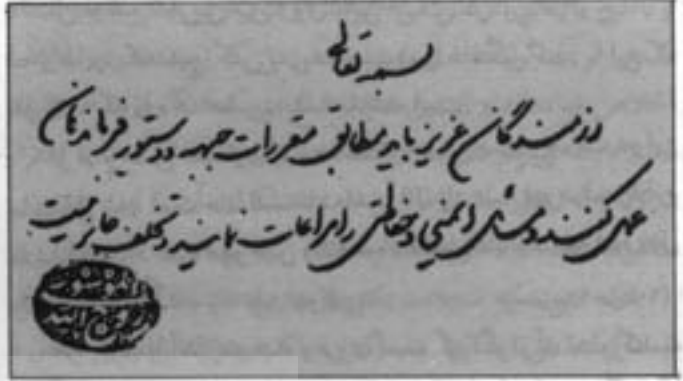 بسمه تعالی
رزمندگان عزیز باید مطابق مقررات جبهه و دستور فرماندهان
عمل کنند و مسائل ایمنی و حفاظتی را مراعات نمایند و تخلف جایز نیست